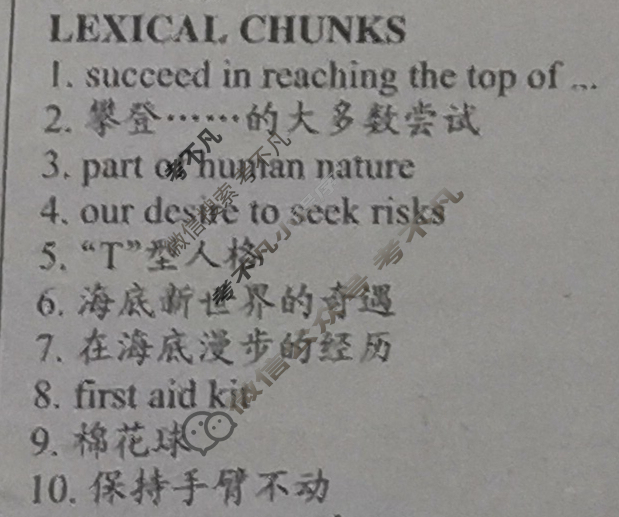 LEXICAL CHUNKS
1. succeed in reaching the top of ...
2. 攀登……的大多数尝试
3. part of human nature
4. our desire to seek risks
5. “T”型人格
6. 海底新世界的奇遇
7. 在海底漫步的经历
8. first aid kit
9. 棉花球
10. 保持手臂不动
微信搜索考不凡
考不凡
微信公众号 考不凡